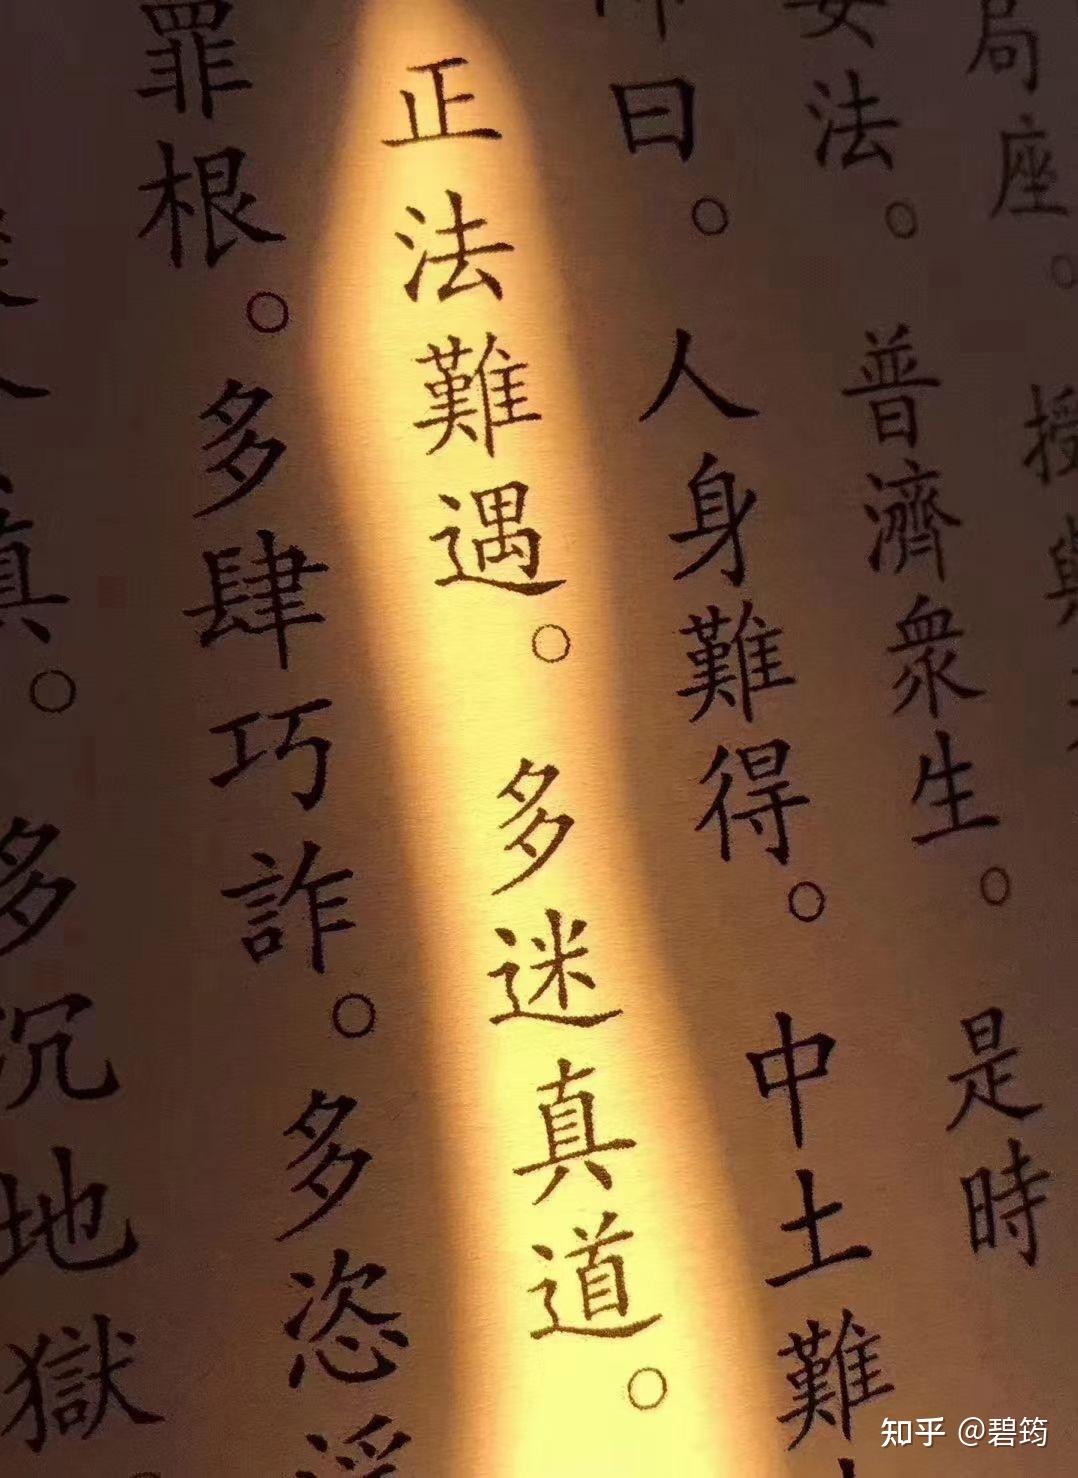 局座。授與
法。普濟衆生。是時
曰。人身難得。中土難
正法難遇。多迷真道。
罪根。多肆巧詐。多恣淫
真。多沉地獄
知乎 @碧筠